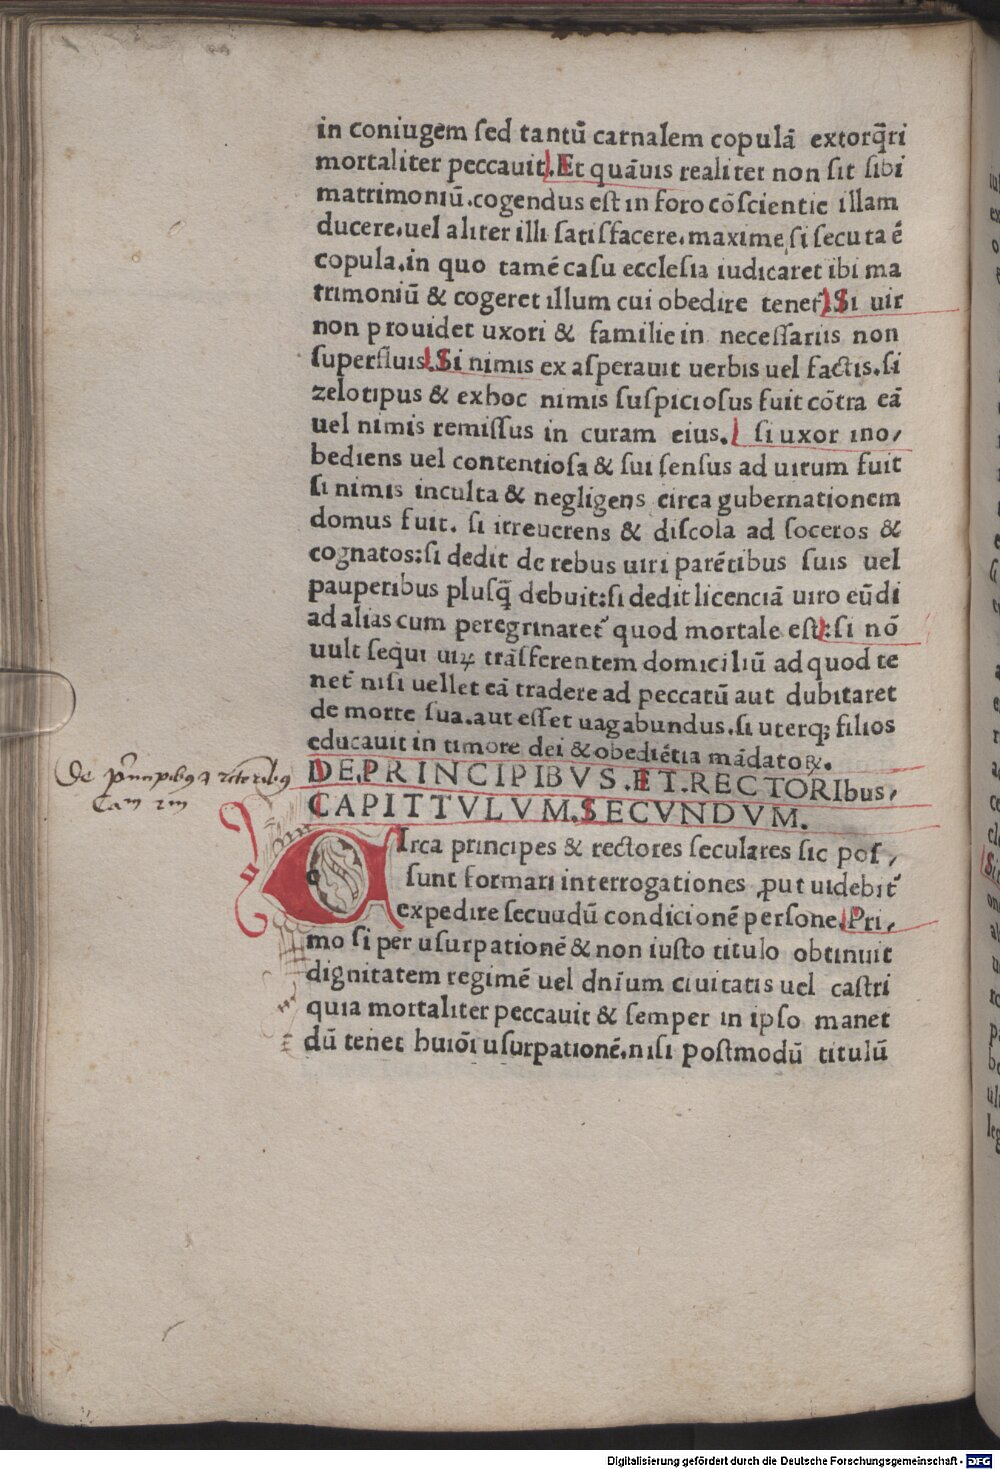 in coniugem sed tantū carnalem copulā extorq̄ri
mortaliter peccauit. Et quāuis realiter non sit sibi
matrimoniū. cogendus est in foro cōscientie illam
ducere. uel aliter illi satisfacere. maxime si secuta ē
copula. in quo tamē casu ecclesia iudicaret ibi ma
trimoniū & cogeret illum cui obedire tenet᷑. Si uir
non prouidet uxori & familie in necessariis non
superfluis. Si nimis exasperauit uerbis uel factis. si
zelotipus & exhoc nimis suspiciosus fuit cōtra eā
uel nimis remissus in curam eius. si uxor ino/
bediens uel contentiosa & sui sensus ad uirum fuit
si nimis inculta & negligens circa gubernationem
domus fuit. si irreuerens & discola ad soceros &
cognatos: si dedit de rebus uiri parētibus suis uel
pauperibus plusq̄ debuit: si dedit licenciā uiro eūdi
ad alias cum peregrinaret᷑ quod mortale est: si nō
uult sequi uiꝝ trāsferentem domiciliū ad quod te
net᷑ nisi uellet eā tradere ad peccatū aut dubitaret
de morte sua. aut esset uagabundus. si uterq; filios
educauit in timore dei & obediētia mādatoꝝ.
DE PRINCIPIBVS. ET. RECTORIbus/
CAPITTVLVM. SECVNDVM.
De prīncipibus et rectoribus
Cam
CIrca principes & rectores seculares sic pos/
sunt formari interrogationes ꝓut uidebit᷑
expedire secuudū condicionē persone. Pri/
mo si per usurpationē & non iusto titulo obtinuit
dignitatem regimē uel dnīum ciuitatis uel castri
quia mortaliter peccauit & semper in ipso manet
dū tenet huiōi usurpationē. nisi postmodū titulū
Digitalisierung gefördert durch die Deutsche Forschungsgemeinschaft - DFG